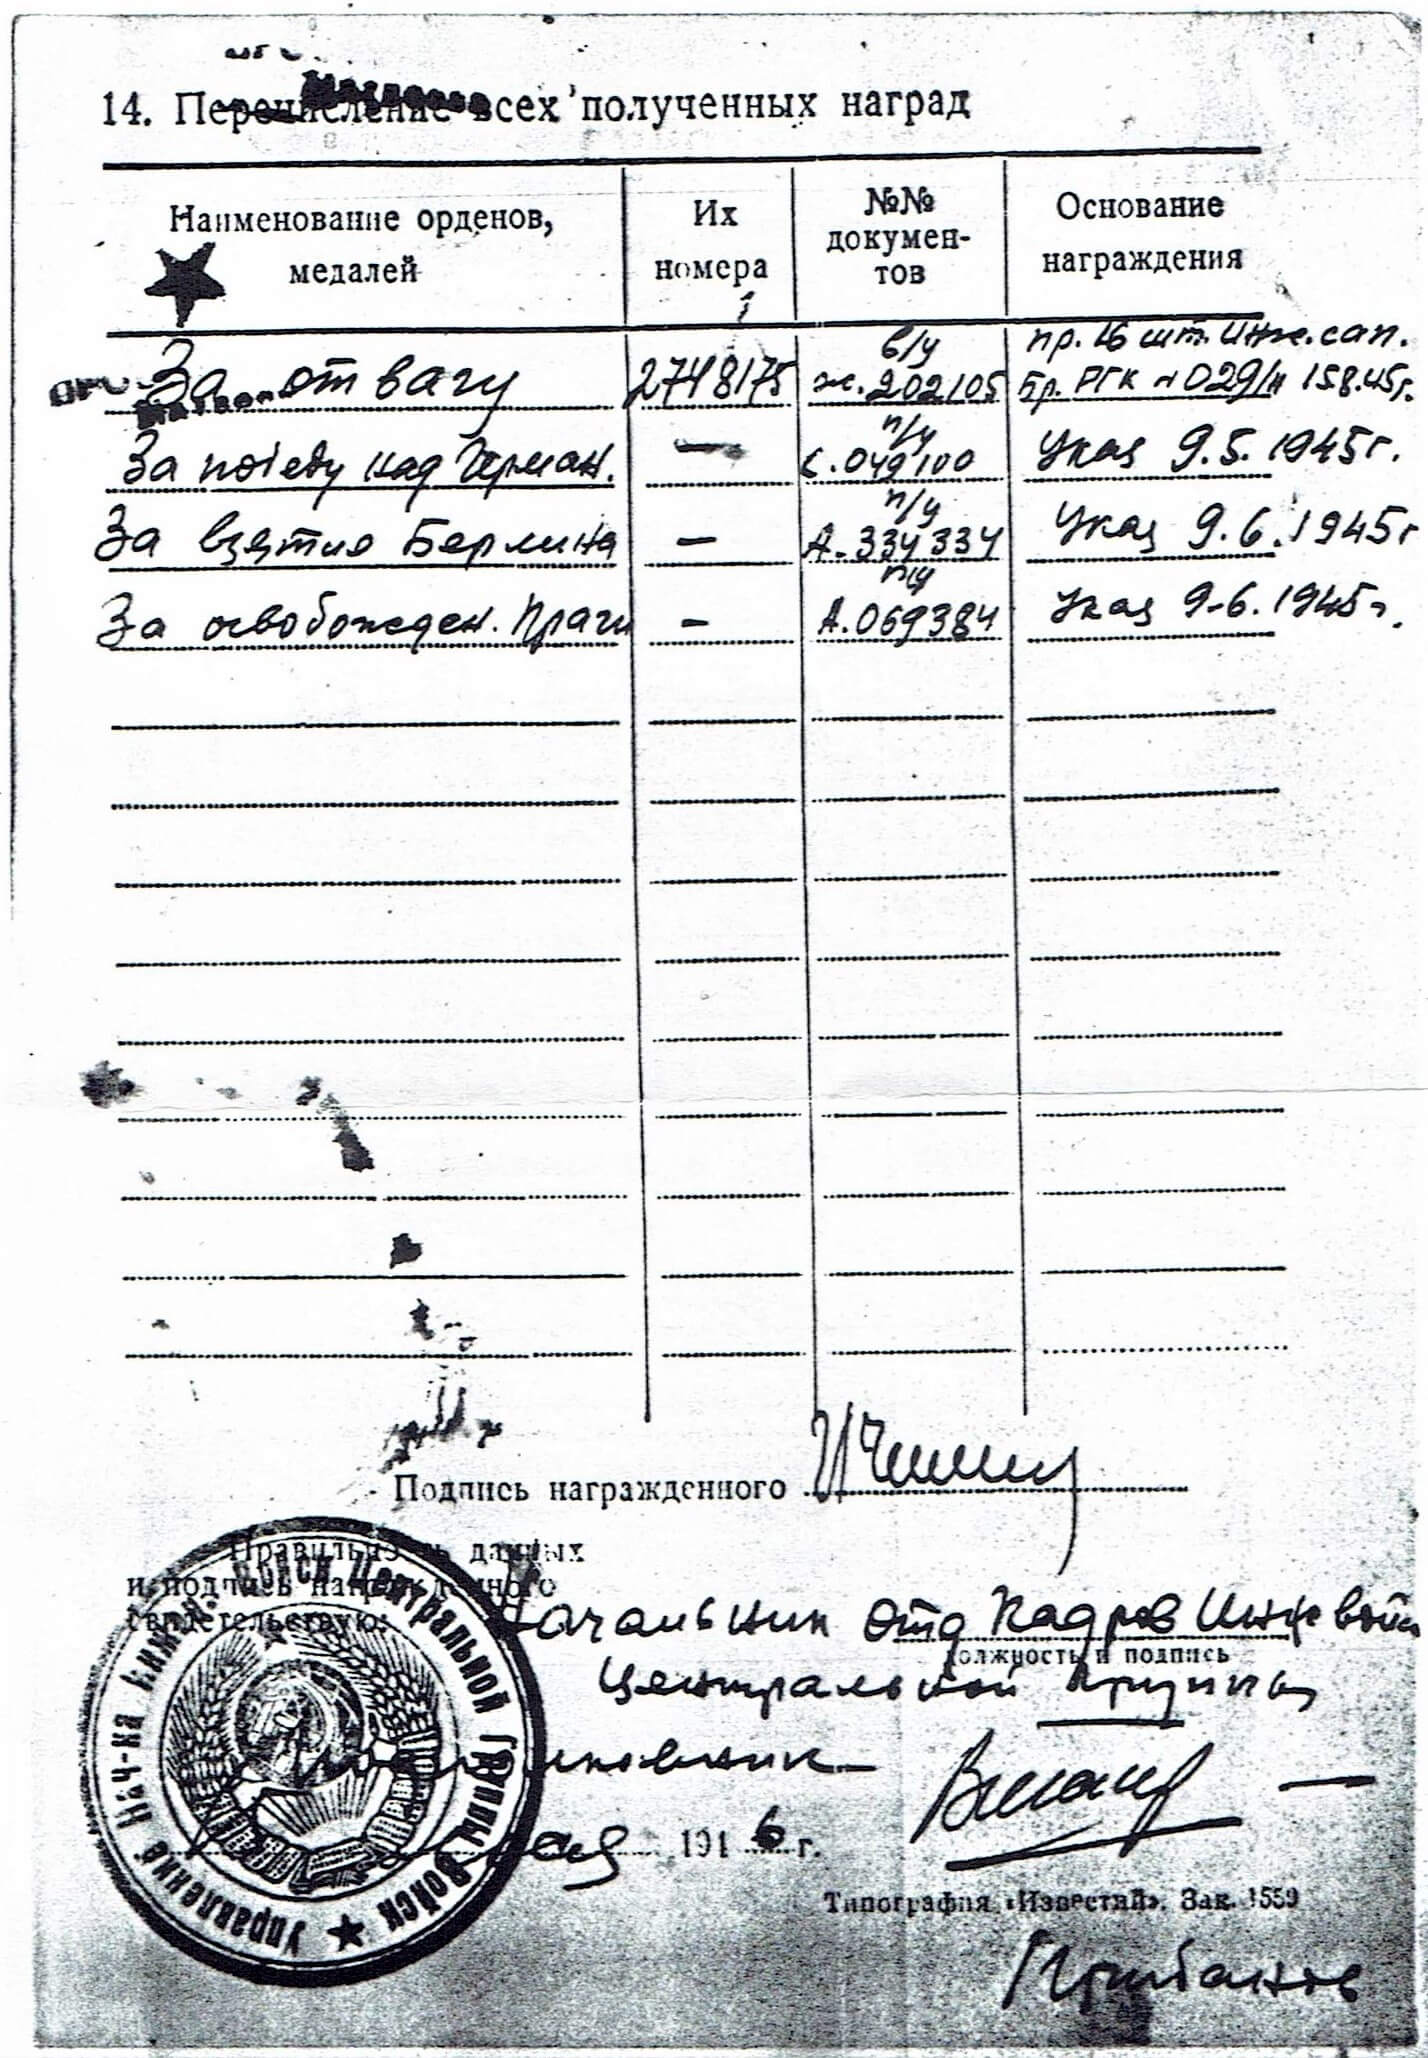 14. Перечисление всех полученных наград
Наименование орденов, медалей
Их номера
№№ докумен-тов
Основание награждения
За отвагу 2748175 в/у ж.202105 пр. 16 шт. инж. сап. бр. РГК № 029/н 15.8.45г.
За победу над Герман. — п/у К.049100 Указ 9.5.1945г.
За взятие Берлина — п/у А.334334 Указ 9.6.1945г
За освобожден. Праги — п/у А.069384 Указ 9.6.1945г.
Подпись награжденного
Правильность данных
и подпись награжденного
свидетельствую:
Начальник отд Кадров Инж войск
должность и подпись
Центральной группы
мая 1946 г.
Управление Нач-ка Инжен. Войск Центральной Группы Войск
Типография «Известий». Зак. 1559